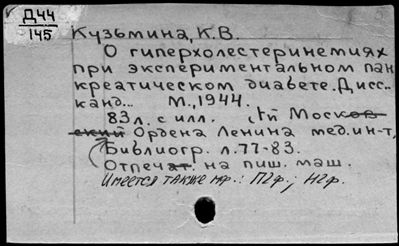 Д44
145
Кузьмина, К.В.
О гиперхолестеринемиях
при экспериментальном пан
креатическом диабете. Дисс..
канд... М., 1944.
83 л. с илл. 1й Москов
ский Ордена Ленина мед. ин-т,
Библиогр. л. 77-83.
Отпечат. на пиш. маш.
Имеется также мф.: П2ф.; Н2ф.